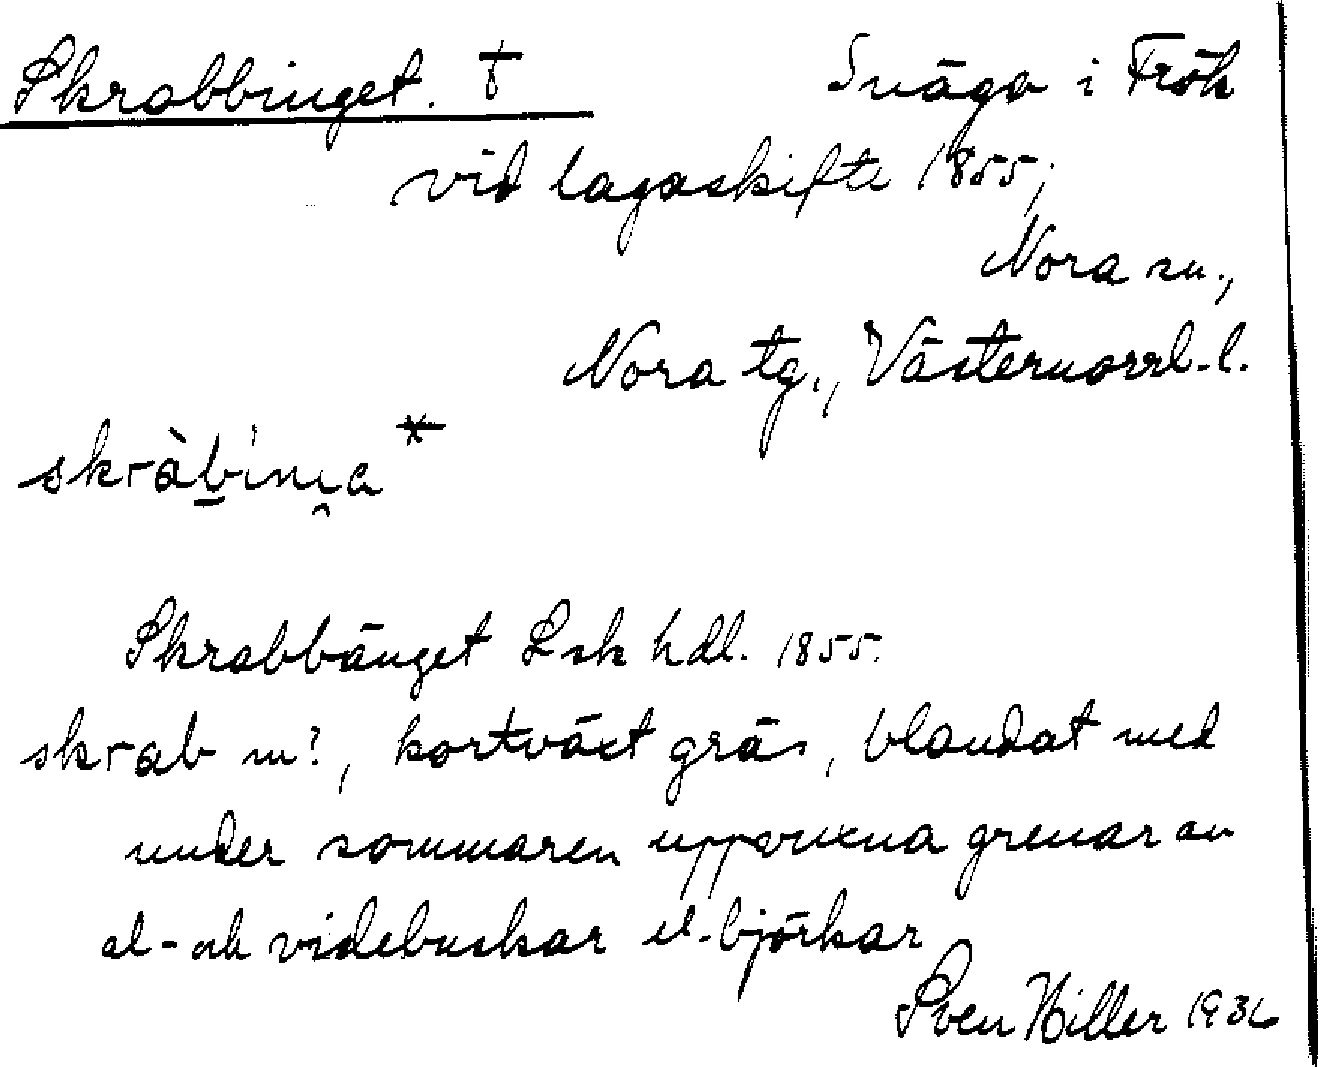 Skrabbinget. † Snäga i Frök
vid lagaskifte 1855;
Nora sn.,
Nora tg., Västernorrl. l.
skràbinia *
Skrabbänget Lsk hdl. 1855.
skrab m?, kortväxt gräs, blandat med
under sommaren uppvuxna grenar av
al- och videbuskar el. björkar
Sven Hiller 1936